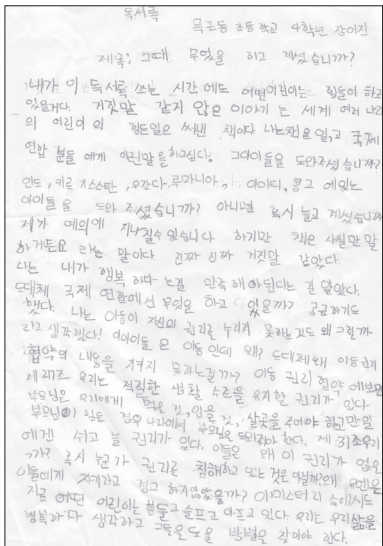 독서록
목포동 초등 학교 4학년 장이진
제목: 그때 무엇을 하고 계셨습니까?
내가 이 독서록 쓰는 시간에도 어떤어린이는 힘들어 하고
있을거다. 거짓말 같지 않은 이야기는 세계 여러 나라
의 어린이의 힘든일은 써낸 책이다 나는책을 읽고, 국제
연합 분들 에게 이런말을 하고싶다! 그아이들을 도와주셨습니까?
인도, 키르기스스탄, 우간다, 루마니아, 아이티, 콩고 에있는
아이들을 도와 주셨습니까? 아니면 혹시 놀고 계셨습니까
제가 예의에 지나칠수 있습니다 하지만 책은 사실만 말
하거든요 라는 말이다 진짜 진짜 거짓말 같았다.
나는 내가 행복 하다 는걸 만족 해야 된다는 걸 알았다.
도대체 국제 연합에선 무엇을 하고 있을까? 궁금하기도
했다. 나는 아동이 자신의 권리를 누리지 못하는것도 왜 그럴까
라고 생각했다! 이아이들 은 아동 인데 왜? 도대체 왜 아동권리
협약의 내용을 지키지 못하는걸까? 아동 권리 협약 에보면
제 27조 우리는 적절한 생활 수준을 유지할 권리가 있다
부모님은 우리에게 먹을 것, 입을 것, 살곳을 주어야 하고만일
부모님이 힘든 경우 나라에서 부모님을 도와줘야 한다. 제 31조우리
에겐 쉬고 놀 권리가 있다. 이들은 왜 이 권리가 없을
까? 혹시 누군가 권리를 침해하고 있는 것은 아닐까?왜 어른은
아들에게 지켜라고 하지않았을까? 이미스터리 속에서도
지금 어떤 어린이는 힘들고 슬프고 아프고 있다 우리는 우리삶을
행복하다 생각하고 그들을 도울 방법을 찾아야 한다.